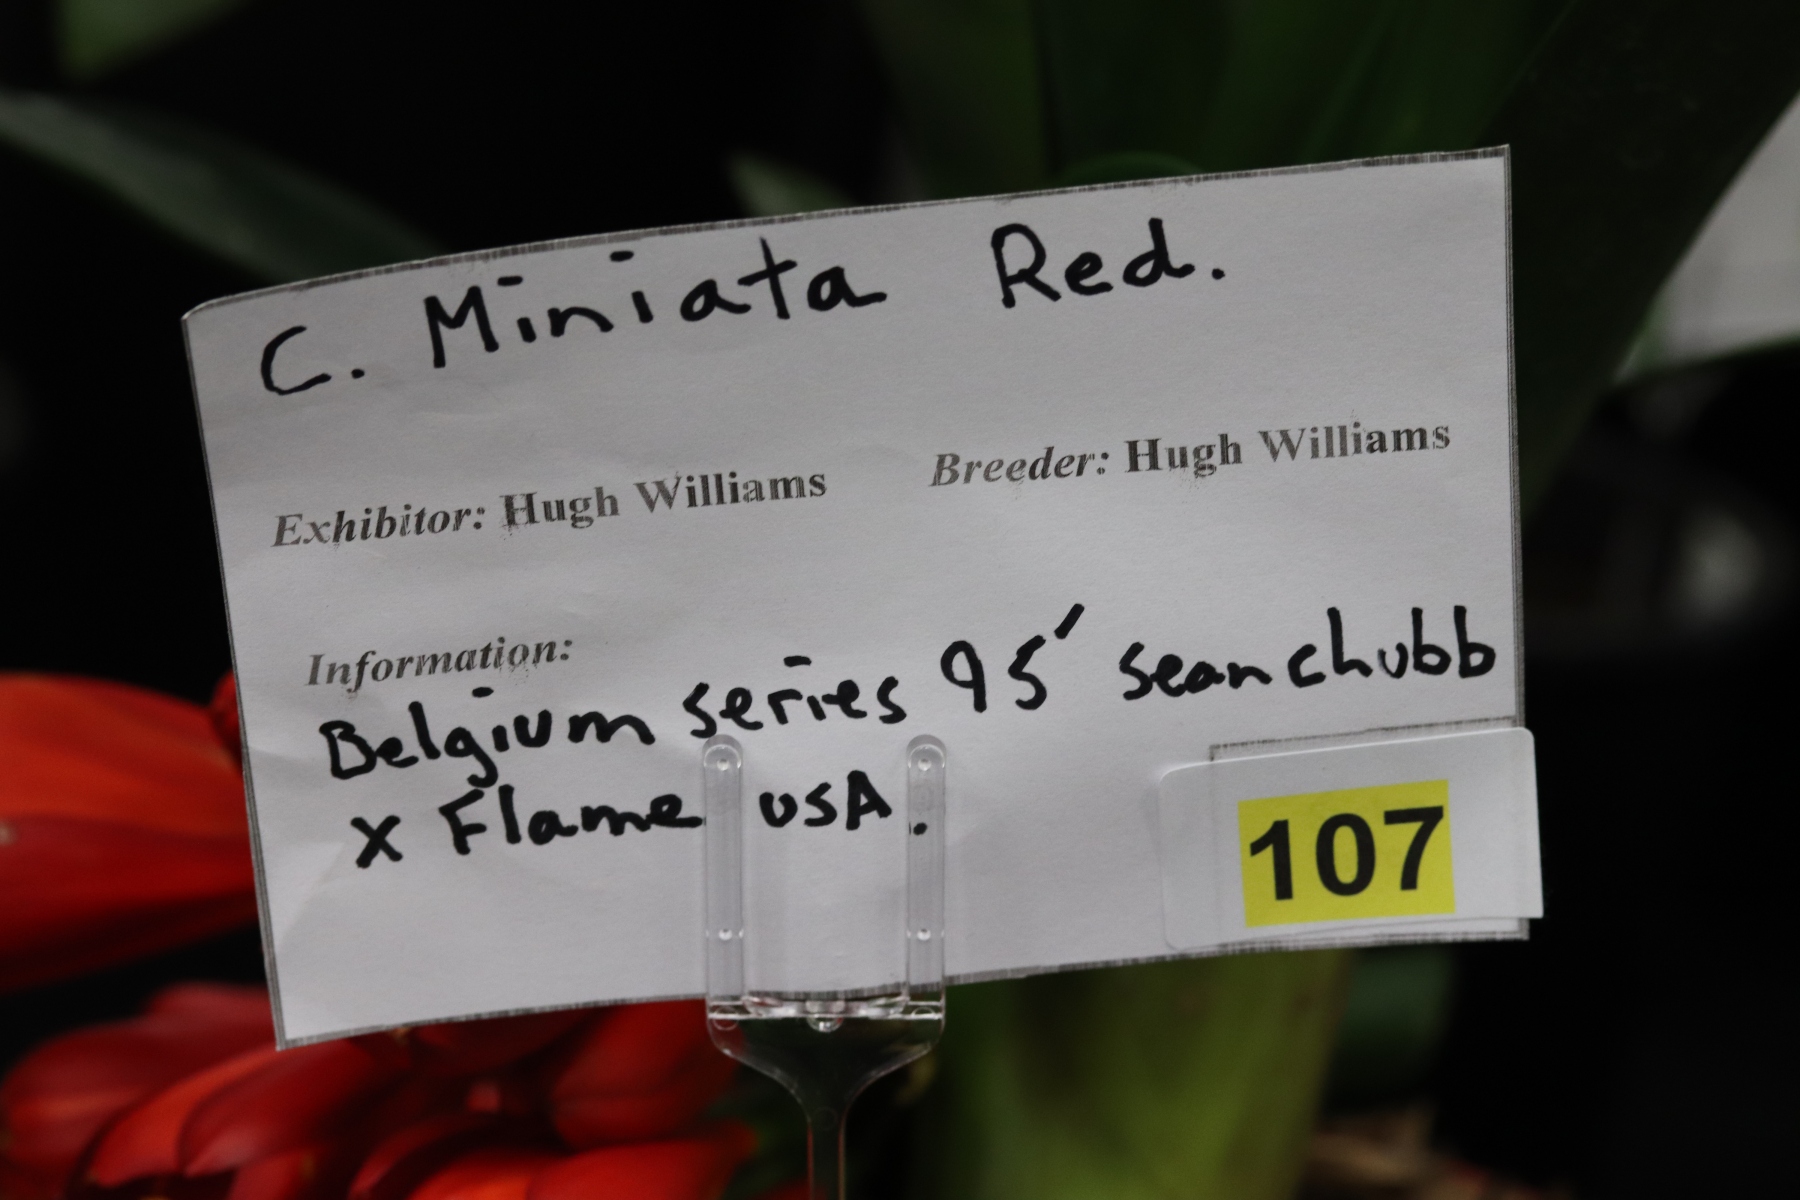 C. Miniata Red.
Exhibitor: Hugh Williams Breeder: Hugh Williams
Information:
Belgium series 95' sean chubb
x Flame USA.
107